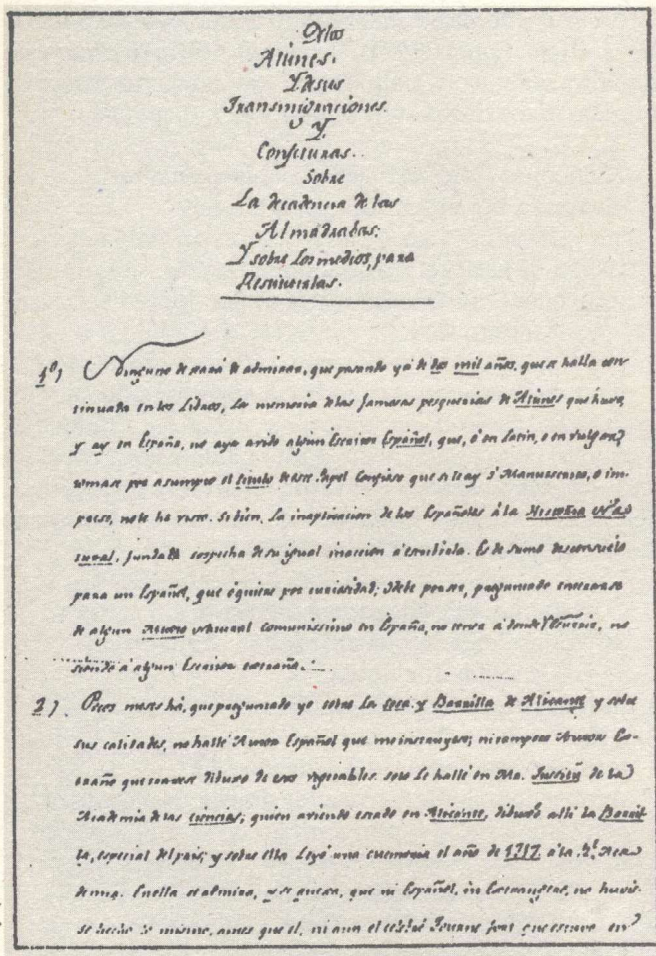 De los
Atúnes.
Y de sus
Transmigraciones.
Y.
Conjeturas.
Sobre
La decadencia de las
Almadrabas;
Y sobre Los medios, para
Restituirlas.
1º) Ninguno dexará de admirar, que pasando yá de dos mil años, que se halla con
tinuada en los Libros, La memoria de las famosas pesquerias de Atúnes que huvo,
y ay en España, no aya avido algún Escritor Español, que, ó en Latin, o en vulgar,
tomase por asumpto el titulo de este Papel Confieso que si le ay ò Manuscrito, o im
preso, no le he visto. Si bien, La inaplicacion de los Españoles á la Historia Na
tural, funda la sospecha de su igual inaccion á escribirla. Es de sumo desconsuelo
para un Español, que ó quiera por curiosidad; ó debe por
preguntado enterarse
de algun natural comunissimo en España, no tenga á donde no
siendo á algun Escritor extraño.
2) Pocos meses há, que preguntado yo sobre La Soca y Barrilla de Alicante y sobre
sus calidades, no hallé Autor Español que me instruyese; ni tampoco Autor Ex
traño que tratase de esos vegetables. solo Le hallé en Mr. Jussieu de la
Academia de las Ciencias; quien aviendo estado en Alicante, dibuxó allí la Barril
la, especial del pais; y sobre ella Leyó una memoria el año de 1717 á la Rl. Aca
demia. En ella se admira, y se quexa, que ni Español, ni Extrangero, no huvie
se hecho lo mismo, antes que él, ni aun el célebre que estuvo en